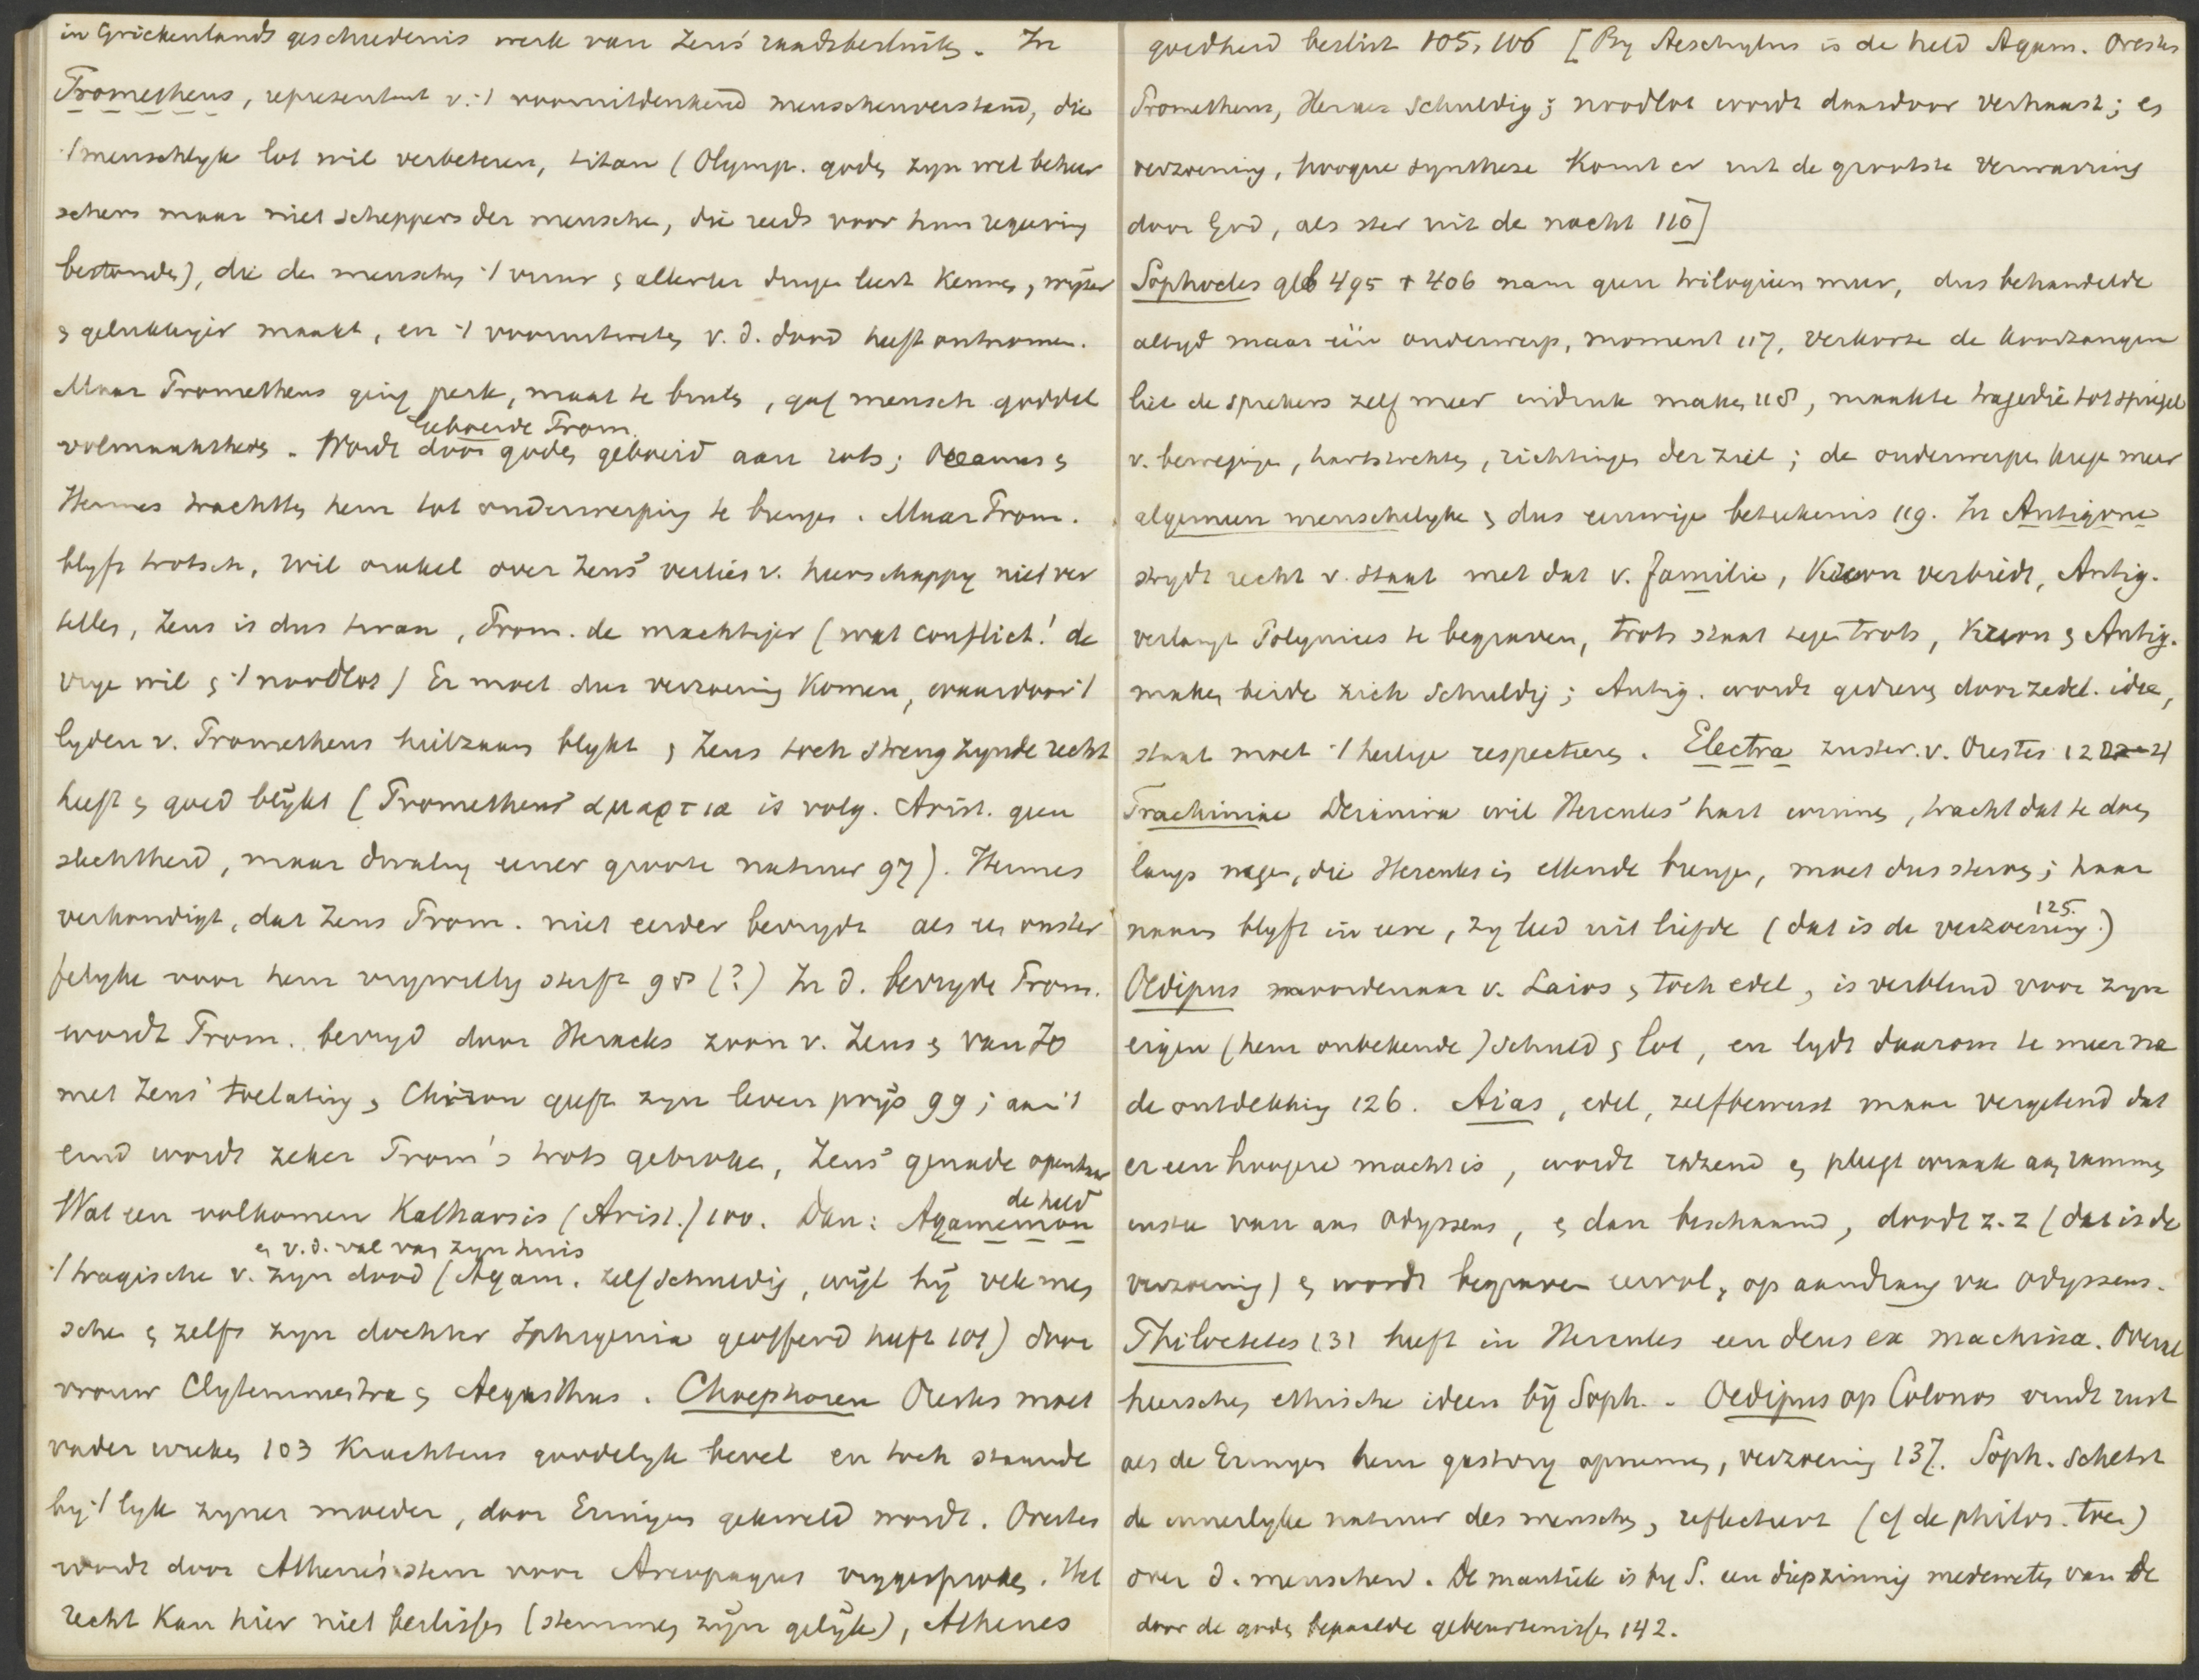 in Griekenlands geschiedenis werk van Zeus' raadsbesluit. In
Prometheus, representant v. 't vooruitdenkend menschenverstand, die
't menschlyk lot wil verbeteren, titan (Olymp. goden zyn wel beheer
schers maar niet scheppers der menschen, die reeds voor hun regeering
bestonden), die den menschen 't vuur & allerlei dingen leert kennen, wijzer
& gelukkiger maakt, en 't vooruitweten v. d. dood heeft ontnomen.
Maar Prometheus ging perk, maat te buiten, gaf mensch goddel
geboeide Prom.
volmaaktheid. Wordt door goden geboeid aan rots; Oceanus &
Hermes trachtten hem tot onderwerping te brengen. Maar Prom.
blyft trotsch, wil orakel over Zeus' verlies v. heerschappy niet ver
tellen, Zeus is dus tiran, Prom. de machtiger (wat conflict! de
vrye wil & 't noodlot) Er moet dus verzoening komen, waardoor 't
lyden v. Prometheus heilzaam blykt & Zeus toch streng zynde recht
heeft & goed blijkt (Prometheus' αμαρτια is volg. Arist. geen
slechtheid, maar dwaling eener groote natuur 97). Hermes
verkondigt, dat Zeus Prom. niet eerder bevrydt als een onster
felyke voor hem vrywillig sterft 98 (?) In d. bevryde Prom.
wordt Prom. bevryd door Heracles zoon v. Zeus & van Io
met Zeus' toelating & Chiron geeft zyn leven prijs 99; aan 't
eind wordt zeker Prom's trots gebroken, Zeus' genade openbaar
Wat een volkomen Katharsis (Arist.) 100. Dan: Agamemnon
de held
& v. d. val van zyn huis
't tragische v. zyn dood (Agam. zelf schuldig, wijl hij vele men
schen & zelfs zyn dochter Iphigenia geofferd heeft 101) door
vrouw Clytemnestra & Aegisthus. Choephoren Orestes moet
vader wreken 103 krachtens goddelyk bevel en toch staande
by 't lyk zyner moeder, door Erinyen gekweld wordt. Orestes
wordt door Athene's stem voor Areopagus vrygesproken. Het
recht kan hier niet beslissen (stemmen zijn gelijk), Athenes
goedheid beslist 105, 106 [By Aeschylus is de held Agam. Orestes
Prometheus, schuldig; noodlot wordt daardoor verhaast; en
verzoening, hoogere synthese komt er uit de grootste verwarring
door God, als ster uit de nacht 110]
Sophocles geb 495 + 406 nam geen trilogieën meer, dus behandelde
altyd maar één onderwerp, moment 117, verkorte de koorzangen
liet de sprekers zelf meer indruk maken 118, maakte tragedie tot spiegel
v. bewegingen, hartstochten, richtingen der ziel; de onderwerpen kregen meer
algemeen menschelyke & dus eeuwige beteekenis 119. In Antigone
strydt recht v. staat met dat v. familie, Kreon verbiedt, Antig.
verlangt Polynices te begraven, trots staat tegen trots, Kreon & Antig.
maken beide zich schuldig; Antig. wordt gedreven door zedel. idee,
staat moet 't heilige respecteeren. Electra zuster v. Orestes 12
Trachiniae Deianira wil Hercules' hart winnen, tracht dat te doen
langs wegen, die Hercules in ellende brengen, moet dus sterven; haar
naam blyft in eere, zy leed uit liefde (dat is de verzoening 125.)
Oedipus moordenaar v. Laios & toch edel, is verblind voor zyn
eigen (hem onbekende) schuld & lot, en lydt daarom te meer na
de ontdekking 126. Aias, edel, zelfbewust maar vergetend dat
er een hoogere macht is, wordt razend & pleegt wraak aan rammen
instee van aan Odysseus, & dan beschaamd, doodt z. z (dat is de
verzoening) & wordt begraven eervol, op aandrang van Odysseus.
Philoctetes 131 heeft in Hercules een deus ex machina. Overal
heerschen ethische ideen bij Soph. - Oedipus op Colonos vindt rust
als de Erinyen hem gastvry opnemen, verzoening 137. Soph. schetst
de innerlyke natuur des menschen, reflecteert (cf de philos. toen)
over d. menschen. De mantiek is by S. een diepzinnig medeweten van de
door de goden bepaalde gebeurtenissen 142.